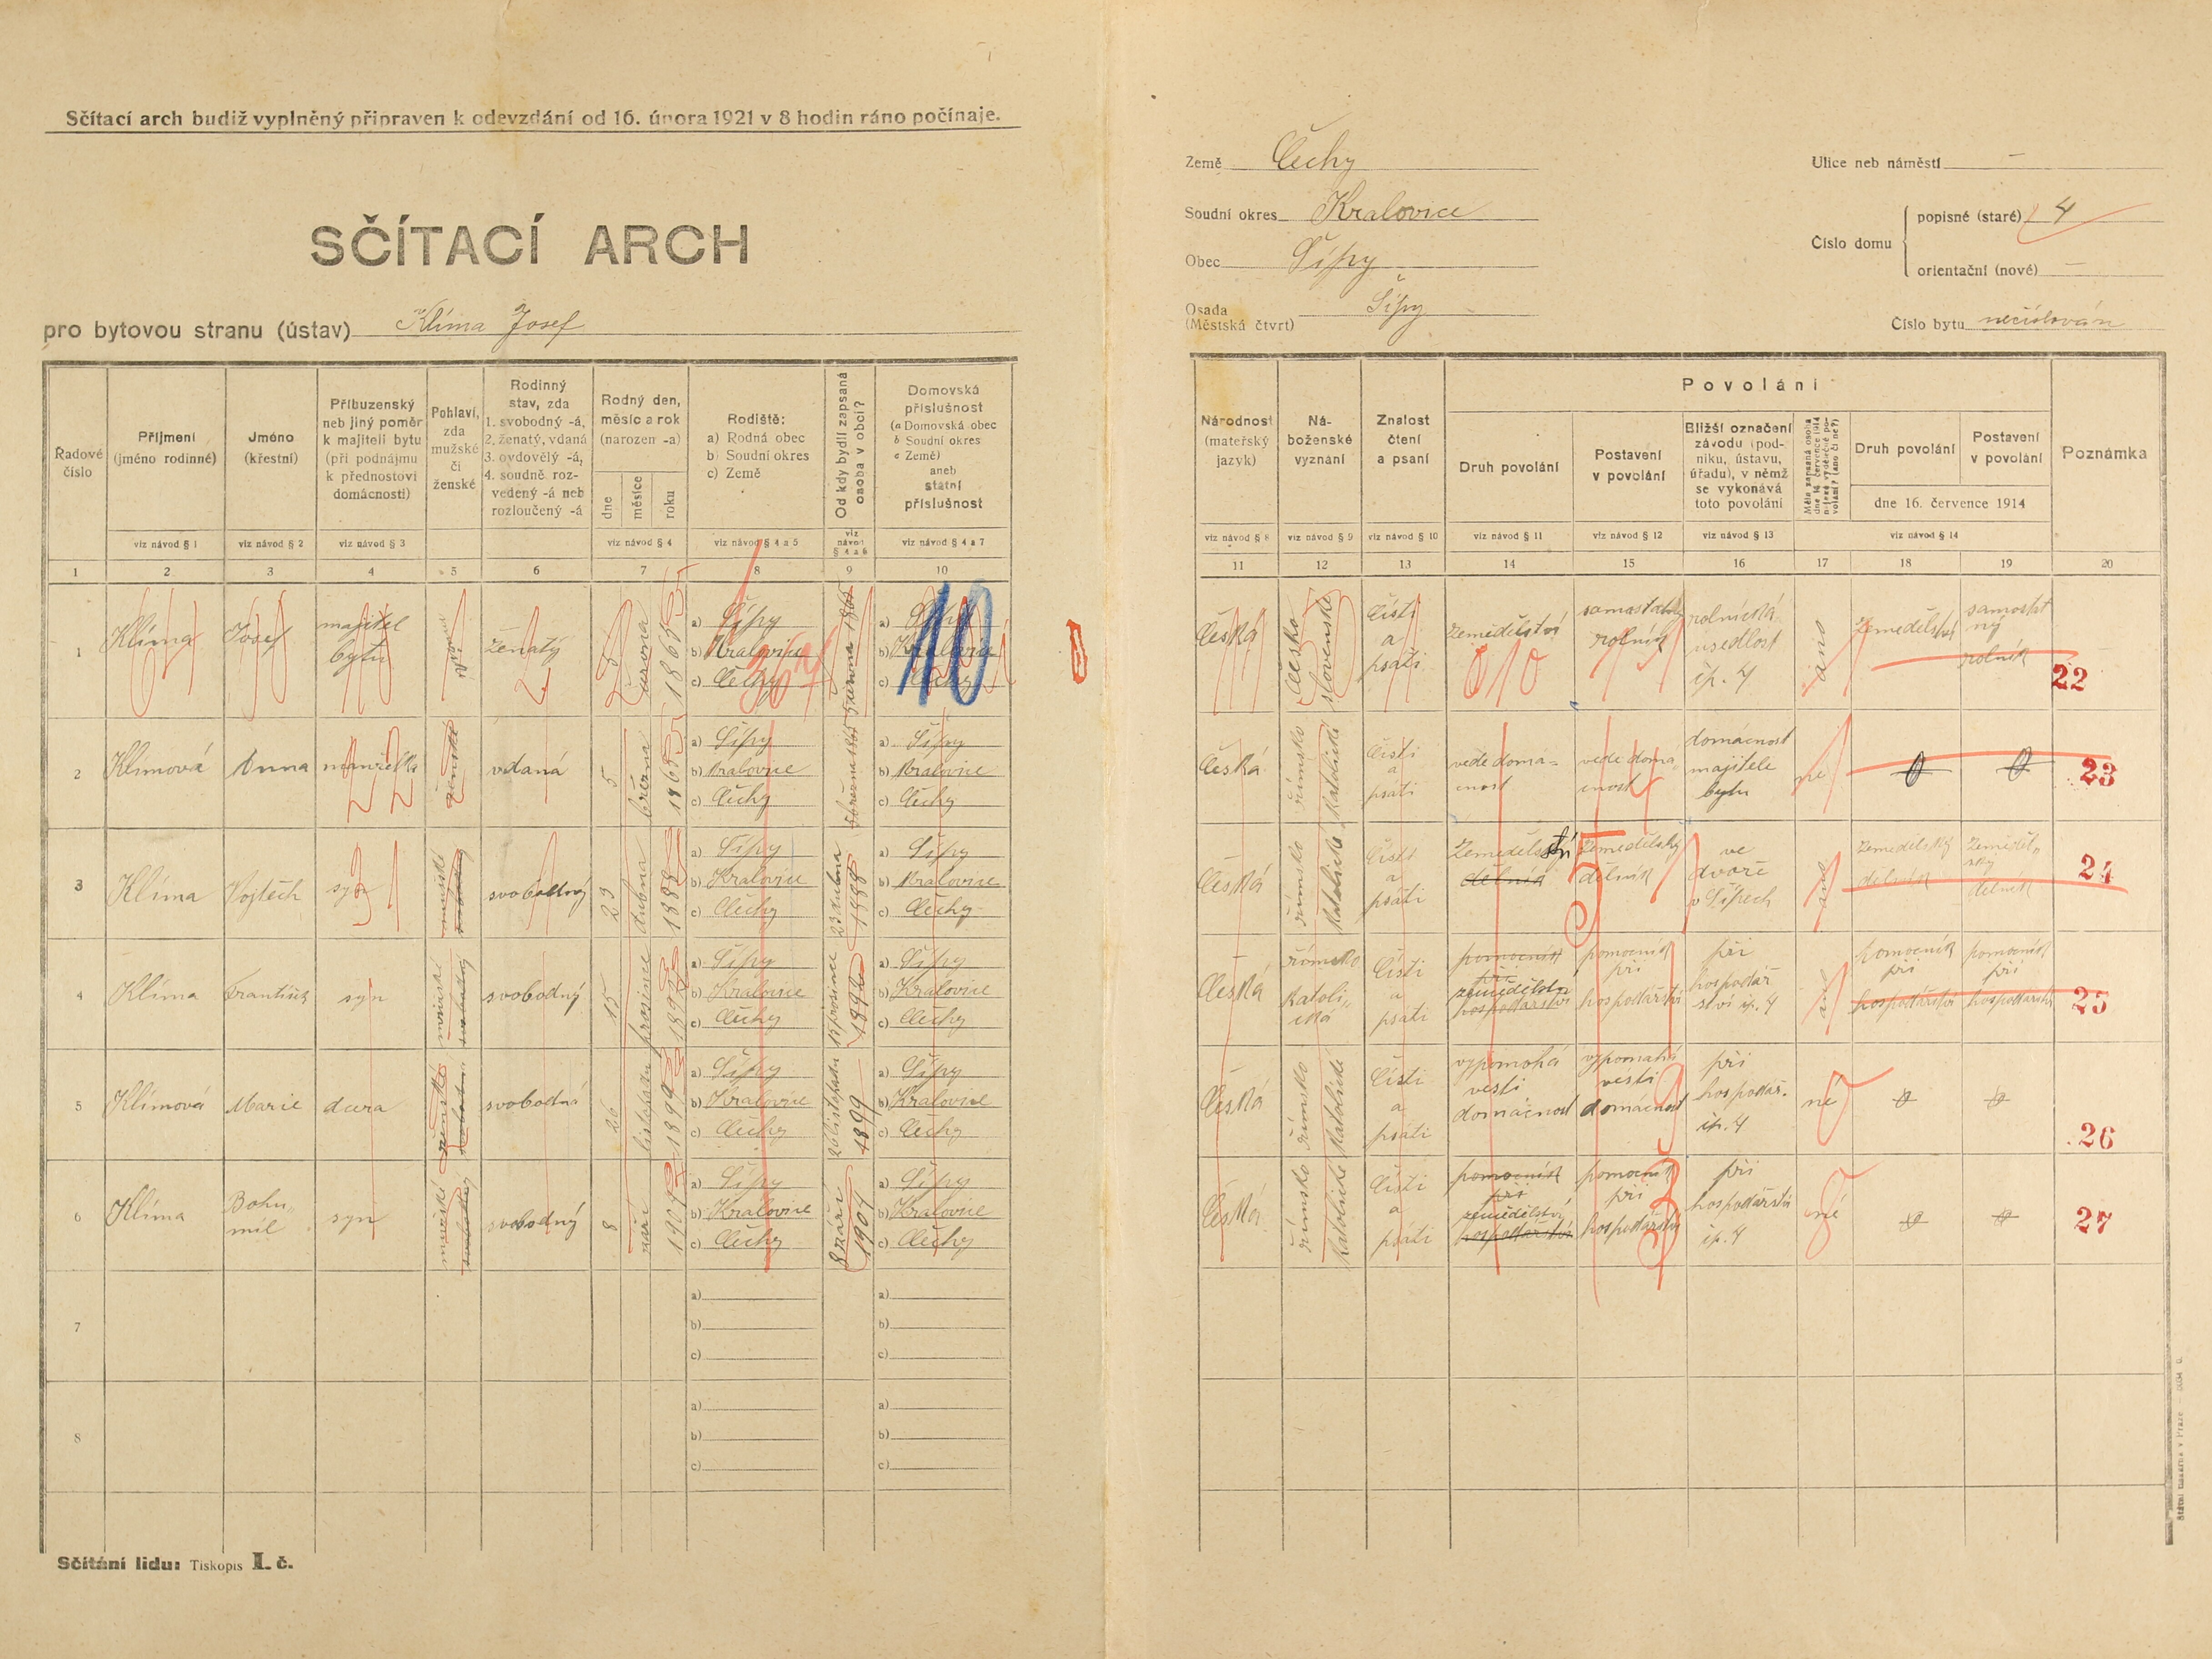 Sčítací arch budiž vyplněný připraven k odevzdání od 16. února 1921 v 8 hodin ráno počínaje.
SČÍTACÍ ARCH
pro bytovou stranu (ústav) Klíma Josef
Země Čechy
Soudní okres Kralovice
Obec Šípy
Osada Šípy
(Městská čtvrť)
Ulice neb náměstí —
Číslo domu
popisné (staré) 4
orientační (nové) —
Číslo bytu nečíslován
Řadové číslo
Příjmení (jméno rodinné)
Jméno (křestní)
Příbuzenský neb jiný poměr k majiteli bytu (při podnájmu k přednostovi domácnosti)
Pohlaví, zda mužské či ženské
Rodinný stav, zda
1. svobodný -á,
2. ženatý, vdaná
3. ovdovělý -á,
4. soudně rozvedený -á neb rozloučený -á
Rodný den, měsíc a rok (narozen -a)
dne
měsíce
roku
Rodiště:
a) Rodná obec
b) Soudní okres
c) Země
Od kdy bydlí zapsaná osoba v obci?
Domovská příslušnost
(a Domovská obec
b Soudní okres
c Země)
aneb státní příslušnost
viz návod § 1
viz návod § 2
viz návod § 3
viz návod § 4
viz návod § 4 a 5
viz návod § 4 a 6
viz návod § 4 a 7
1 2 3 4 5 6 7 8 9 10
Národnost (mateřský jazyk)
Náboženské vyznání
Znalost čtení a psaní
Povolání
Druh povolání
Postavení v povolání
Bližší označení závodu (podniku, ústavu, úřadu), v němž se vykonává toto povolání
Měla zapsaná osoba dne 16. července 1914 nějaké výdělečné povolání? (ano či ne?)
Druh povolání
Postavení v povolání
dne 16. července 1914
Poznámka
viz návod § 8
viz návod § 9
viz návod § 10
viz návod § 11
viz návod § 12
viz návod § 13
viz návod § 14
11 12 13 14 15 16 17 18 19 20
1 Klíma Josef majitel bytu ženatý února 1865
a) Šípy
b) Kralovice
c) Čechy
a) Šípy
b) Kralovice
c) Čechy
10
Česká Československé Čísti a psáti Zemědělství samostatný rolník rolnická usedlost čp. 4 ano Zemědělství samostatný rolník 22
2 Klímová Anna manželka ženské vdaná 5 března 1865
a) Šípy
b) Kralovice
c) Čechy
5 března 1865
a) Šípy
b) Kralovice
c) Čechy
Česká římsko katolické Čísti a psáti vede domácnost vede domácnost domácnost majitele bytu ne 0 0 23
3 Klíma Vojtěch syn mužské svobodný 23 dubna 1888
a) Šípy
b) Kralovice
c) Čechy
23 dubna 1888
a) Šípy
b) Kralovice
c) Čechy
Česká římsko katolické Čísti a psáti Zemědělství dělník Zemědělský dělník ve dvoře v Šípech ano Zemědělský dělník Zemědělský dělník 24
4 Klíma František syn mužské svobodný 15 prosince
a) Šípy
b) Kralovice
c) Čechy
15 prosince
a) Šípy
b) Kralovice
c) Čechy
Česká římsko katolická Čísti a psáti pomocník při zemědělství hospodářství pomocník při hospodářství při hospodářství čp. 4 ano pomocník při hospodářství pomocník při hospodářství 25
5 Klímová Marie dcera ženské svobodná 26 listopadu 1899
a) Šípy
b) Kralovice
c) Čechy
26 listopadu 1899
a) Šípy
b) Kralovice
c) Čechy
Česká římsko katolické Čísti a psáti vypomáhá vésti domácnost vypomahá vésti domácnost při hospodář. čp. 4 né 0 0 26
6 Klíma Bohumil syn mužské svobodný 8 září 1904
a) Šípy
b) Kralovice
c) Čechy
8 září 1904
a) Šípy
b) Kralovice
c) Čechy
Česká římsko katolické Čísti a psáti pomocník při zemědělství hospodářství pomocník při hospodářství při hospodářství čp. 4 né 0 0 27
7
a)
b)
c)
a)
b)
c)
8
a)
b)
c)
a)
b)
c)
Sčítání lidu: Tiskopis I. č.